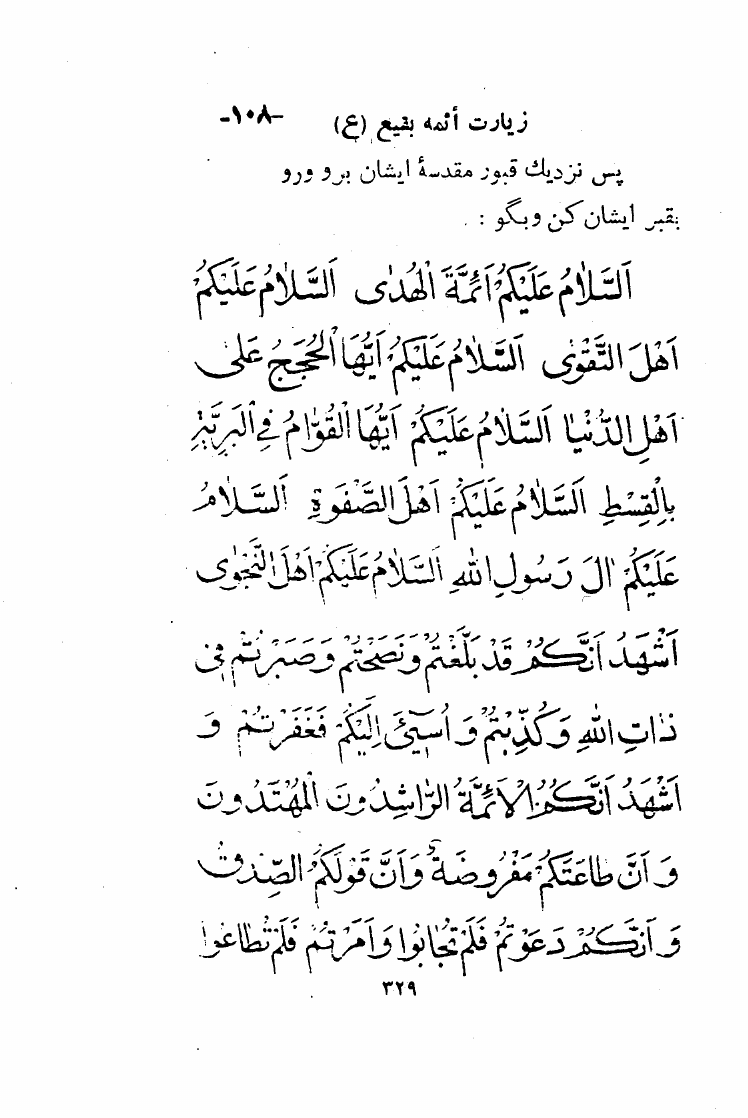 زیارت أئمه بقیع (ع) -۱۰۸-
پس نزدیك قبور مقدسهٔ ایشان برو ورو
بقبر ایشان کن وبگو :
اَلسَّلٰامُ عَلَيْكُمْ اَئِمَّةَ الْهُدٰى اَلسَّلٰامُ عَلَيْكُمْ
اَهْلَ التَّقْوٰى اَلسَّلٰامُ عَلَيْكُمْ اَيُّهَا الْحُجَجُ عَلٰى
اَهْلِ الدُّنْيٰا اَلسَّلٰامُ عَلَيْكُمْ اَيُّهَا الْقُوّٰامُ فِى الْبَرِيَّةِ
بِالْقِسْطِ اَلسَّلٰامُ عَلَيْكُمْ اَهْلَ الصَّفْوَةِ اَلسَّلٰامُ
عَلَيْكُمْ اٰلَ رَسُولِ اللهِ اَلسَّلٰامُ عَلَيْكُمْ اَهْلَ النَّجْوٰى
اَشْهَدُ اَنَّكُمْ قَدْ بَلَّغْتُمْ وَنَصَحْتُمْ وَصَبَرْتُمْ فِى
ذٰاتِ اللهِ وَكُذِّبْتُمْ وَ اُسٓيئَ اِلَيْكُمْ فَغَفَرْتُمْ وَ
اَشْهَدُ اَنَّكُمُ الْاَئِمَّةُ الرّٰاشِدُونَ الْمُهْتَدُونَ
وَ اَنَّ طٰاعَتَكُمْ مَفْرُوضَةٌ وَاَنَّ قَوْلَكُمُ الصِّدْقُ
وَ اَنَّكُمْ دَعَوْتُمْ فَلَمْ تُجٰابُوا وَاَمَرْتُمْ فَلَمْ تُطٰاعُوا
۳۲۹